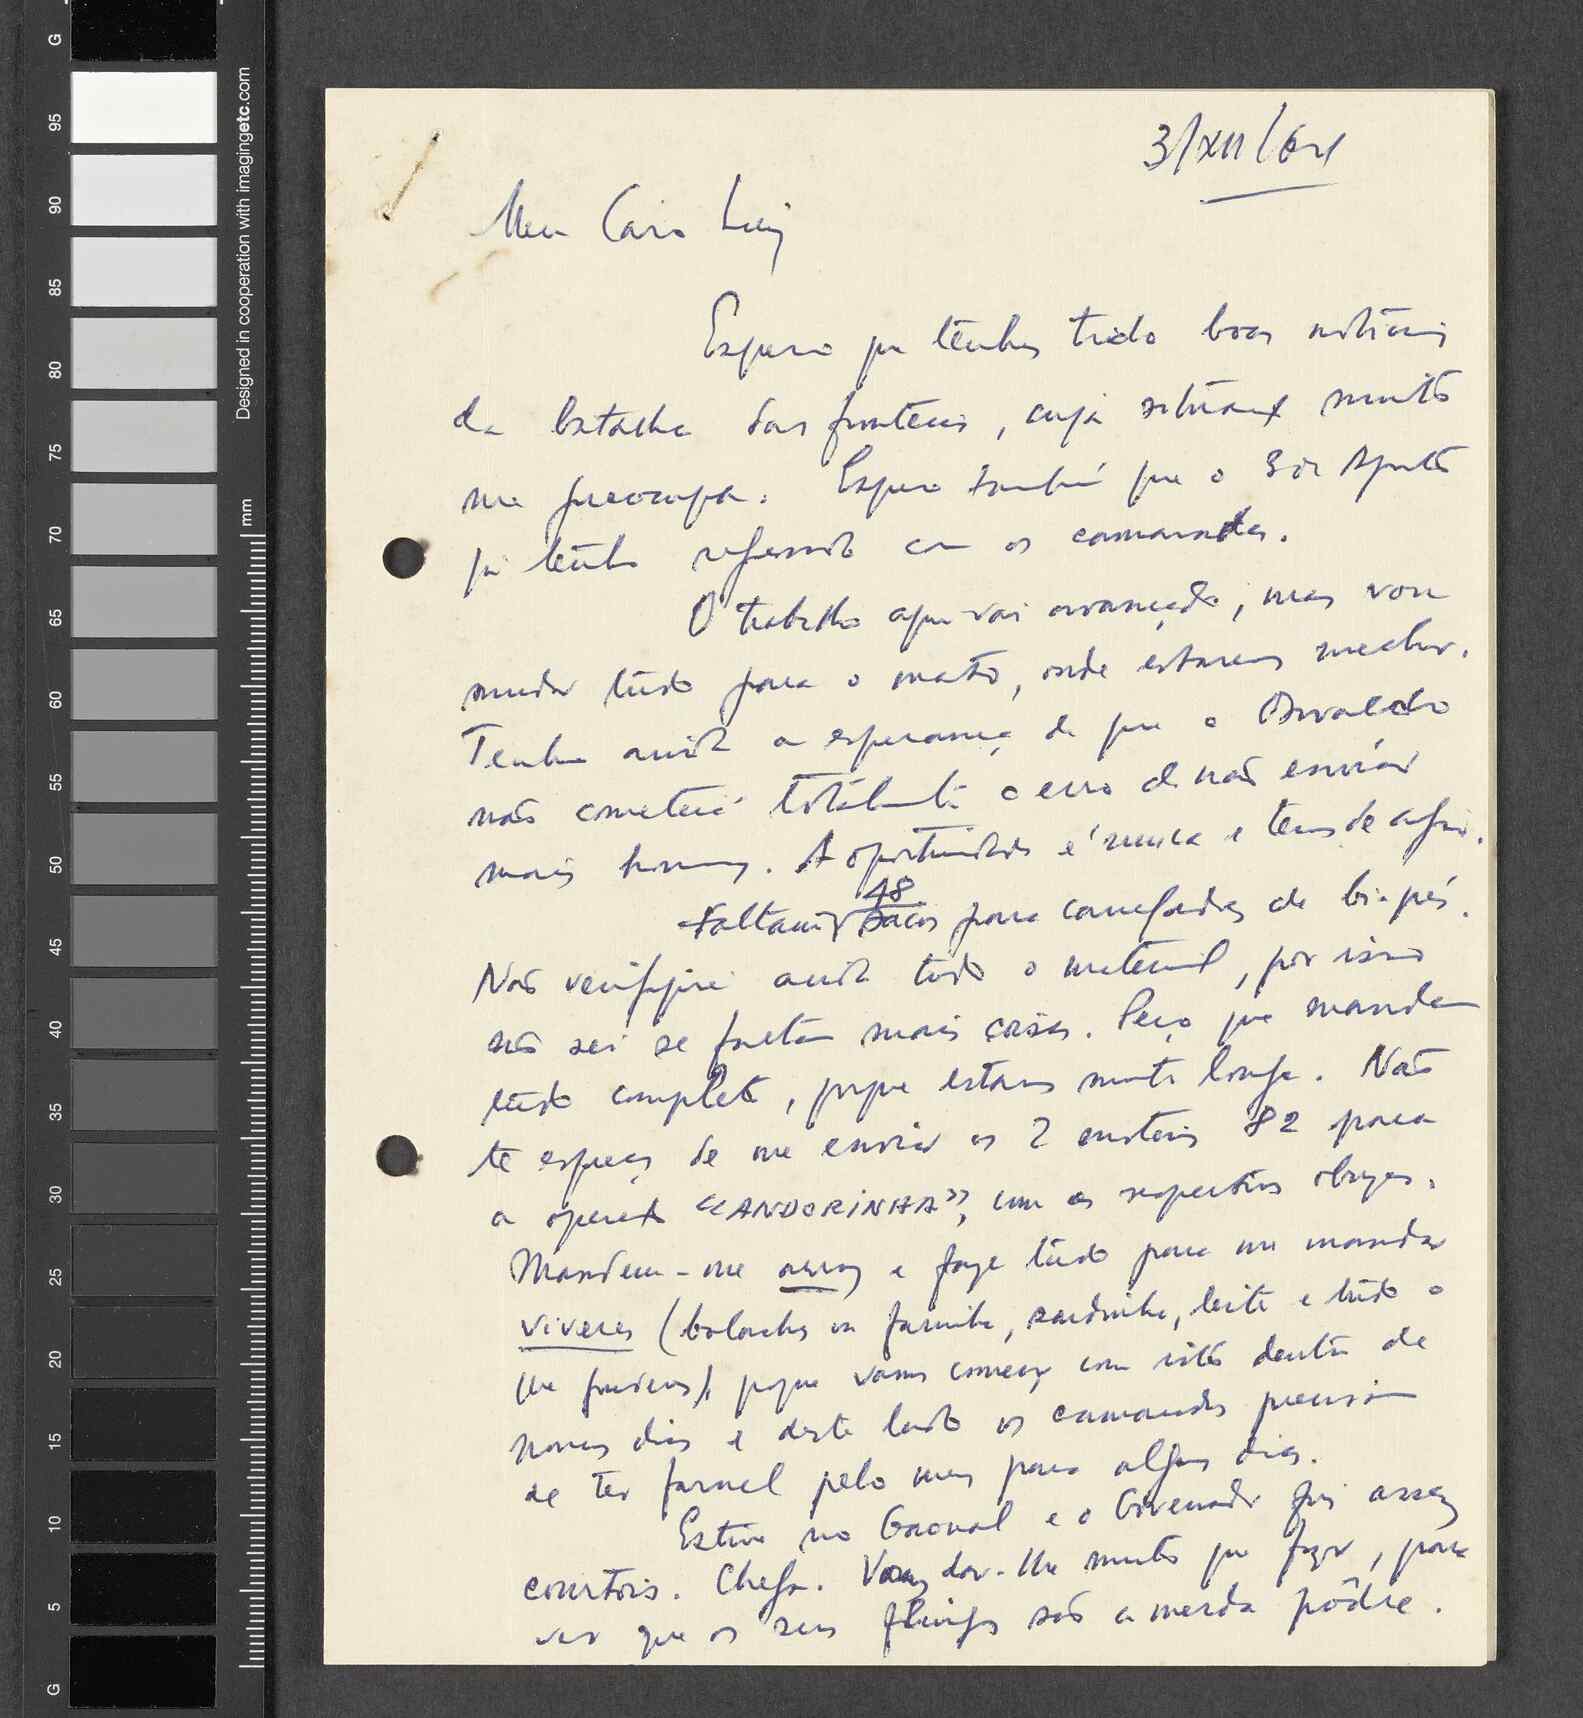 3/XII/64
Meu Caro Luiz
Espero que tenhas tido boas notícias
da batalha das fronteiras, cuja situação muito
me preocupa. Espero também que o
já tenha regressado com os camaradas.
O trabalho aqui vai avançado, mas vou
mudar tudo para o mato, onde estaremos melhor.
Tenho ainda a esperança de que o Osvaldo
não cometerá totalmente o erro de não enviar
mais homens. A oportunidade é única e temos de agir.
Faltam 48 sacos para carregadores de bi-pés.
Não verifiquei ainda todo o material, por isso
não sei se faltam mais coisas. Peço que mandem
tudo completo, porque estamos muito longe. Não
te esqueças de me enviar os 2 morteiros 82 para
a operação "ANDORINHA", com os respectivos obuzes.
Mandem-me arroz e faze tudo para me mandar
víveres (bolachas ou farinha, sardinha, leite e tudo o
que puderes), porque vamos começar com isto dentro de
dias e deste lado os camaradas precisam
de ter farnel pelo menos para alguns dias.
Estive no Gaoual e o Governador foi assez
courtois. Chega. Vamos dar-lhe muito que fazer, para
ver que os seus são a merda pôdre.
95
90
85
80
75
70
65
60
55
50
45
40
35
30
25
20
15
10
5
G
G
mm
Designed in cooperation with imagingetc.com